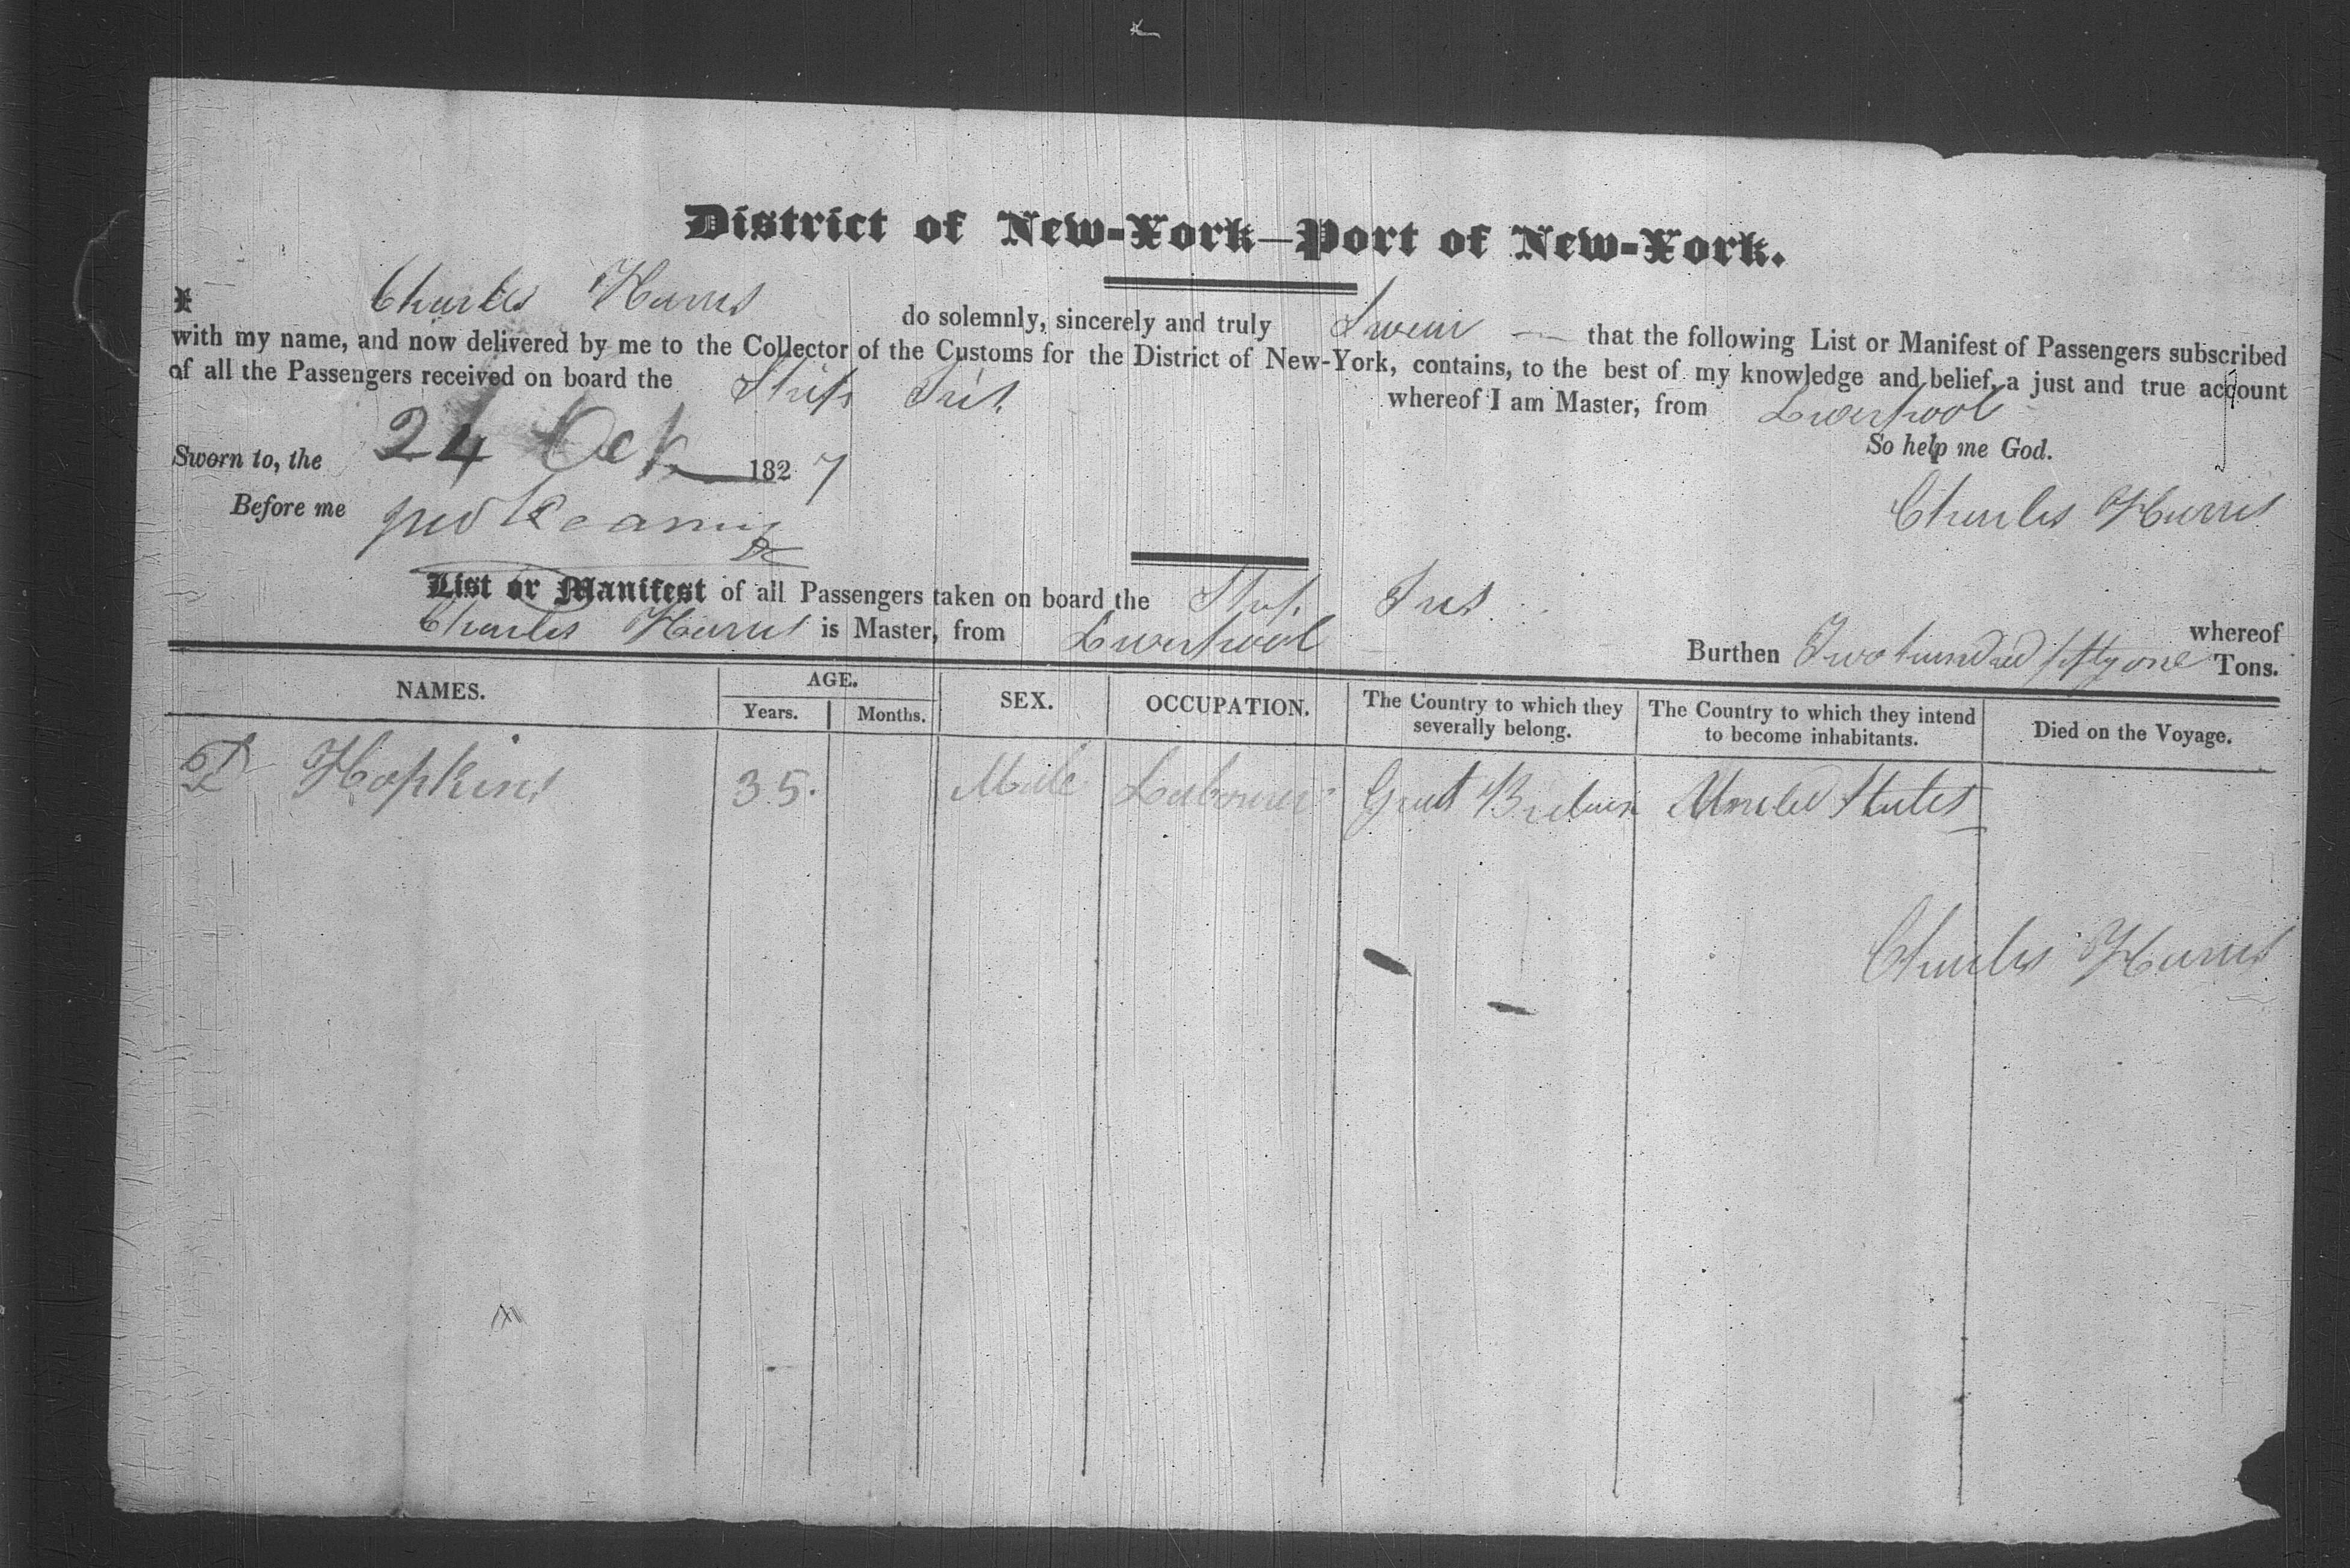 District of New-York—Port of New-York.
I Charles Harris do solemnly, sincerely and truly Swear — that the following List or Manifest of Passengers subscribed
with my name, and now delivered by me to the Collector of the Customs for the District of New-York, contains, to the best of my knowledge and belief, a just and true account
of all the Passengers received on board the Ship Iris whereof I am Master, from Liverpool
So help me God.
Sworn to, the 24 Oct 1827
Charles Harris
Before me
List or Manifest of all Passengers taken on board the Ship Iris whereof
Charles Harris is Master, from Liverpool Burthen Two hundred fifty one Tons.
NAMES. AGE. Years. Months. SEX. OCCUPATION. The Country to which they severally belong. The Country to which they intend to become inhabitants. Died on the Voyage.
Hopkins 35. Male Labourer Great Britain United States
Charles Harris